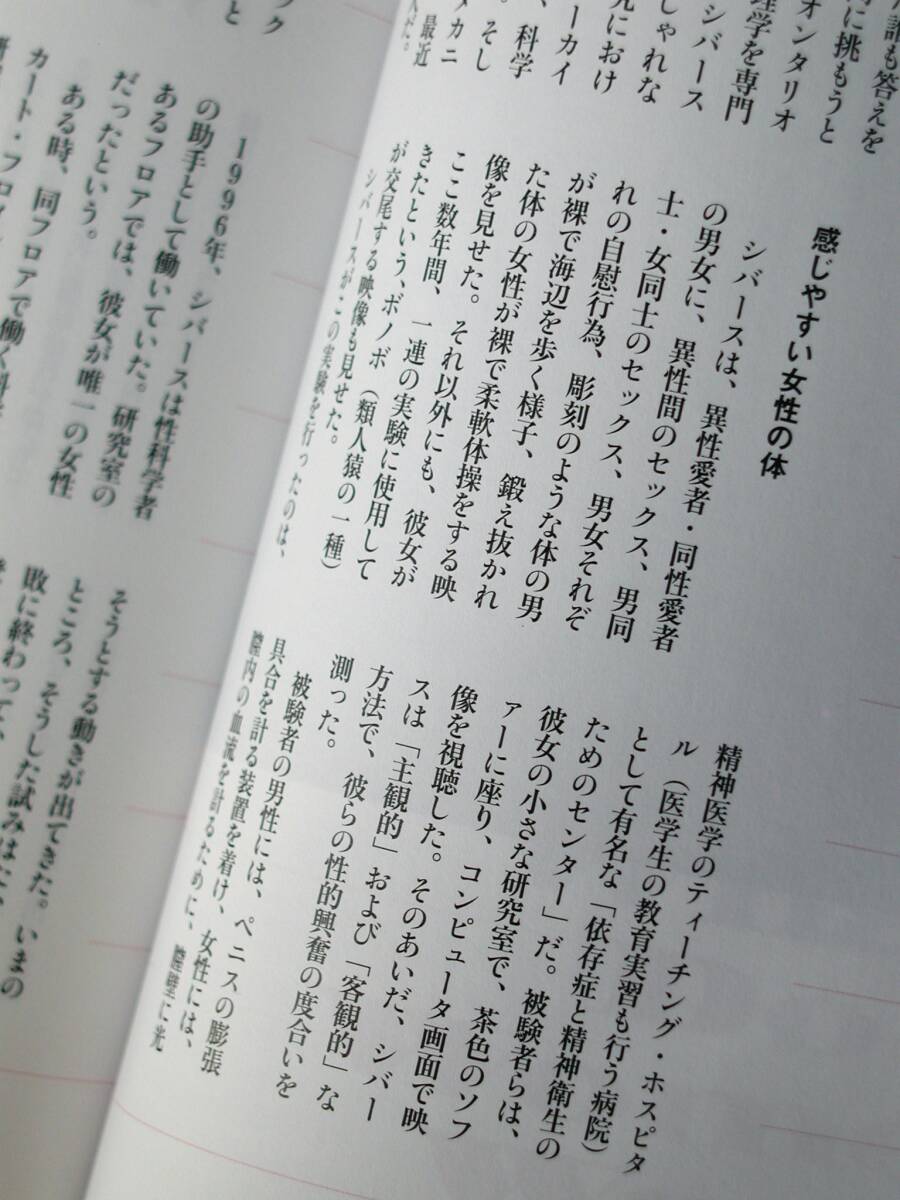 誰も答えを
に挑もうと
オンタリオ
理学を専門
シバース
しゃれな
におけ
ーカイ
、科学
。そし
カニ
最近
だ。
感じやすい女性の体
シバースは、異性愛者・同性愛者
の男女に、異性間のセックス、男同
士・女同士のセックス、男女それぞ
れの自慰行為、彫刻のような体の男
が裸で海辺を歩く様子、鍛え抜かれ
た体の女性が裸で柔軟体操をする映
像を見せた。それ以外にも、彼女が
ここ数年間、一連の実験に使用して
きたという、ボノボ（類人猿の一種）
が交尾する映像も見せた。
シバースがこの実験を行ったのは、
精神医学のティーチング・ホスピタ
ル（医学生の教育実習も行う病院）
として有名な「依存症と精神衛生の
ためのセンター」だ。被験者らは、
彼女の小さな研究室で、茶色のソフ
ァーに座り、コンピュータ画面で映
像を視聴した。そのあいだ、シバー
スは「主観的」および「客観的」な
方法で、彼らの性的興奮の度合いを
測った。
被験者の男性には、ペニスの膨張
具合を計る装置を着け、女性には、
膣内の血流を計るために、膣壁に光
ック
と
1996年、シバースは性科学者
の助手として働いていた。研究室の
あるフロアでは、彼女が唯一の女性
だったという。
ある時、同フロアで働く科
カート・フロ
そうとする動きが出てきた。いまの
ところ、そうした試みは
敗に終わって